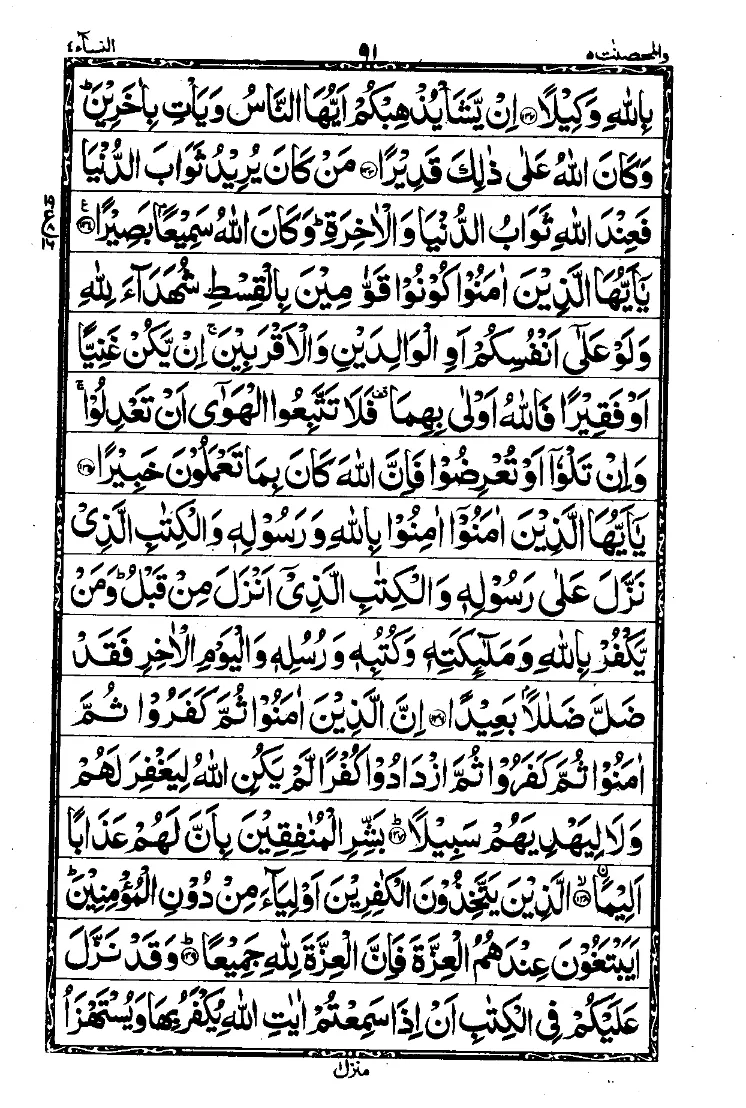 والمحصنٰت ٥ ٩١ النسآء ٤
بِاللّٰهِ وَكِيْلًا ﴿١٣٢﴾ اِنْ يَّشَاْ يُذْهِبْكُمْ اَيُّهَا النَّاسُ وَيَاْتِ بِاٰخَرِيْنَ ؕ
وَكَانَ اللّٰهُ عَلٰى ذٰلِكَ قَدِيْرًا ﴿١٣٣﴾ مَنْ كَانَ يُرِيْدُ ثَوَابَ الدُّنْيَا
فَعِنْدَ اللّٰهِ ثَوَابُ الدُّنْيَا وَالْاٰخِرَةِ ؕ وَكَانَ اللّٰهُ سَمِيْعًۢا بَصِيْرًا ﴿١٣٤﴾ ع
يٰۤاَيُّهَا الَّذِيْنَ اٰمَنُوْا كُوْنُوْا قَوّٰمِيْنَ بِالْقِسْطِ شُهَدَآءَ لِلّٰهِ
وَلَوْ عَلٰۤى اَنْفُسِكُمْ اَوِ الْوَالِدَيْنِ وَالْاَقْرَبِيْنَ ۚ اِنْ يَّكُنْ غَنِيًّا
اَوْ فَقِيْرًا فَاللّٰهُ اَوْلٰى بِهِمَا ۫ فَلَا تَتَّبِعُوا الْهَوٰۤى اَنْ تَعْدِلُوْا ۚ
وَاِنْ تَلْوٗۤا اَوْ تُعْرِضُوْا فَاِنَّ اللّٰهَ كَانَ بِمَا تَعْمَلُوْنَ خَبِيْرًا ﴿١٣٥﴾
يٰۤاَيُّهَا الَّذِيْنَ اٰمَنُوْۤا اٰمِنُوْا بِاللّٰهِ وَرَسُوْلِهٖ وَالْكِتٰبِ الَّذِىْ
نَزَّلَ عَلٰى رَسُوْلِهٖ وَالْكِتٰبِ الَّذِىْۤ اَنْزَلَ مِنْ قَبْلُ ؕ وَمَنْ
يَّكْفُرْ بِاللّٰهِ وَمَلٰٓئِكَتِهٖ وَكُتُبِهٖ وَرُسُلِهٖ وَالْيَوْمِ الْاٰخِرِ فَقَدْ
ضَلَّ ضَلٰلًاۢ بَعِيْدًا ﴿١٣٦﴾ اِنَّ الَّذِيْنَ اٰمَنُوْا ثُمَّ كَفَرُوْا ثُمَّ
اٰمَنُوْا ثُمَّ كَفَرُوْا ثُمَّ ازْدَادُوْا كُفْرًا لَّمْ يَكُنِ اللّٰهُ لِيَغْفِرَ لَهُمْ
وَلَا لِيَهْدِيَهُمْ سَبِيْلًا ﴿١٣٧﴾ ؕ بَشِّرِ الْمُنٰفِقِيْنَ بِاَنَّ لَهُمْ عَذَابًا
اَلِيْمًا ﴿١٣٨﴾ ۙ الَّذِيْنَ يَتَّخِذُوْنَ الْكٰفِرِيْنَ اَوْلِيَآءَ مِنْ دُوْنِ الْمُؤْمِنِيْنَ ؕ
اَيَبْتَغُوْنَ عِنْدَهُمُ الْعِزَّةَ فَاِنَّ الْعِزَّةَ لِلّٰهِ جَمِيْعًا ﴿١٣٩﴾ ؕ وَقَدْ نَزَّلَ
عَلَيْكُمْ فِى الْكِتٰبِ اَنْ اِذَا سَمِعْتُمْ اٰيٰتِ اللّٰهِ يُكْفَرُ بِهَا وَيُسْتَهْزَاُ
منزل